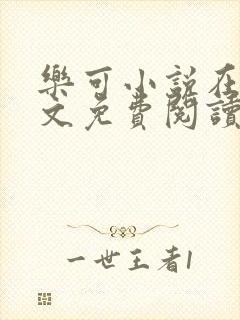 樂可小說在
文免費閱讀
一世王者1